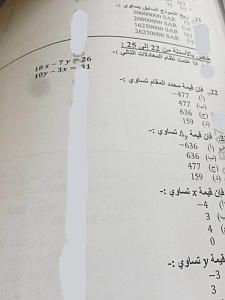 21. السابق يساوي :-
30000000 SAR (أ)
20000000 SAR (ب)
16250000 SAR (ج)
26250000 SAR (د)
خاص بالأسئلة من 22 إلى 25 :
نظام المعادلات التالي :-
18x - 7y = 26
10y - 3x = 31
22. فإن قيمة محدد المقام تساوي :-
(أ) -477
(ب) 477
(ج) 636
(د) 159
فإن قيمة Δy تساوي :-
(أ) -636
(ب) 636
(ج) 477
(د) 159
قيمة x تساوي :-
(أ) -4
(ب) 3
4
0
قيمة y تساوي :-
-3
3